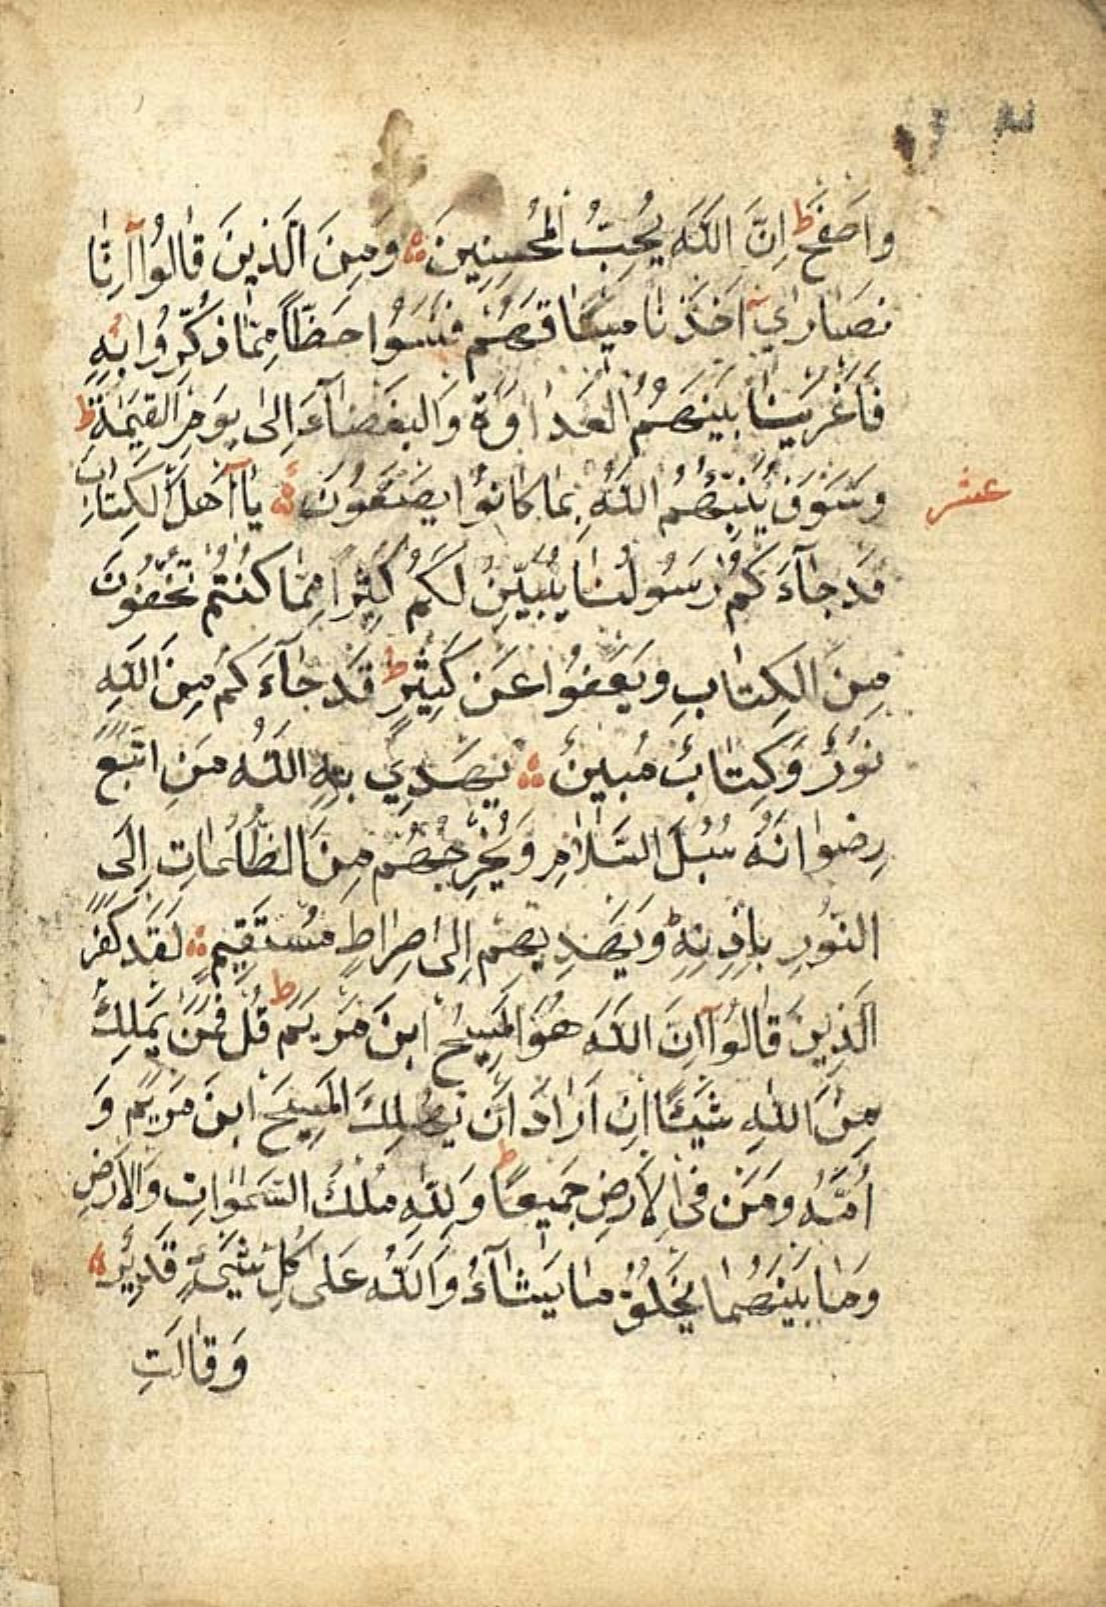 واصفح ط اِنَّ اللّٰهَ يُحِبُّ الْمُحْسِنِينَ وَمِنَ الَّذِينَ قَالُوا اِنَّا
نَصَارٰى اَخَذْنَا مِيثَاقَهُمْ فَنَسُوا حَظًّا مِمَّا ذُكِّرُوا بِهِ
فَاَغْرَيْنَا بَيْنَهُمُ الْعَدَاوَةَ وَالْبَغْضَآءَ اِلٰى يَوْمِ الْقِيٰمَةِ ط
وَسَوْفَ يُنَبِّئُهُمُ اللّٰهُ بِمَا كَانُوا يَصْنَعُونَ يَا اَهْلَ الْكِتَابِ
عشر
قَدْ جَآءَكُمْ رَسُولُنَا يُبَيِّنُ لَكُمْ كَثِيرًا مِمَّا كُنْتُمْ تُخْفُونَ
مِنَ الْكِتَابِ وَيَعْفُوا عَنْ كَثِيرٍ ط قَدْ جَآءَكُمْ مِنَ اللّٰهِ
نُورٌ وَكِتَابٌ مُبِينٌ يَهْدِي بِهِ اللّٰهُ مَنِ اتَّبَعَ
رِضْوَانَهُ سُبُلَ السَّلَامِ وَيُخْرِجُهُمْ مِنَ الظُّلُمَاتِ اِلَى
النُّورِ بِاِذْنِهِ وَيَهْدِيهِمْ اِلٰى صِرَاطٍ مُسْتَقِيمٍ لَقَدْ كَفَرَ
الَّذِينَ قَالُوا اِنَّ اللّٰهَ هُوَ الْمَسِيحُ ابْنُ مَرْيَمَ ط قُلْ فَمَنْ يَمْلِكُ
مِنَ اللّٰهِ شَيْئًا اِنْ اَرَادَ اَنْ يُهْلِكَ الْمَسِيحَ ابْنَ مَرْيَمَ وَ
اُمَّهُ وَمَنْ فِي الْاَرْضِ جَمِيعًا ط وَلِلّٰهِ مُلْكُ السَّمٰوَاتِ وَالْاَرْضِ
وَمَا بَيْنَهُمَا يَخْلُقُ مَا يَشَآءُ وَاللّٰهُ عَلٰى كُلِّ شَيْءٍ قَدِيرٌ
وَقَالَتِ